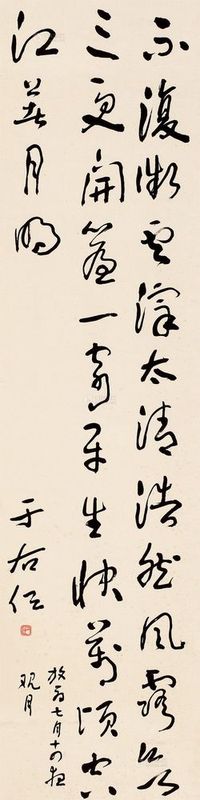 不復微雲滓太清浩然風露欲
三更開簾一寄平生快萬頃空
江著月明
放翁七月十四夜
觀月
于右任